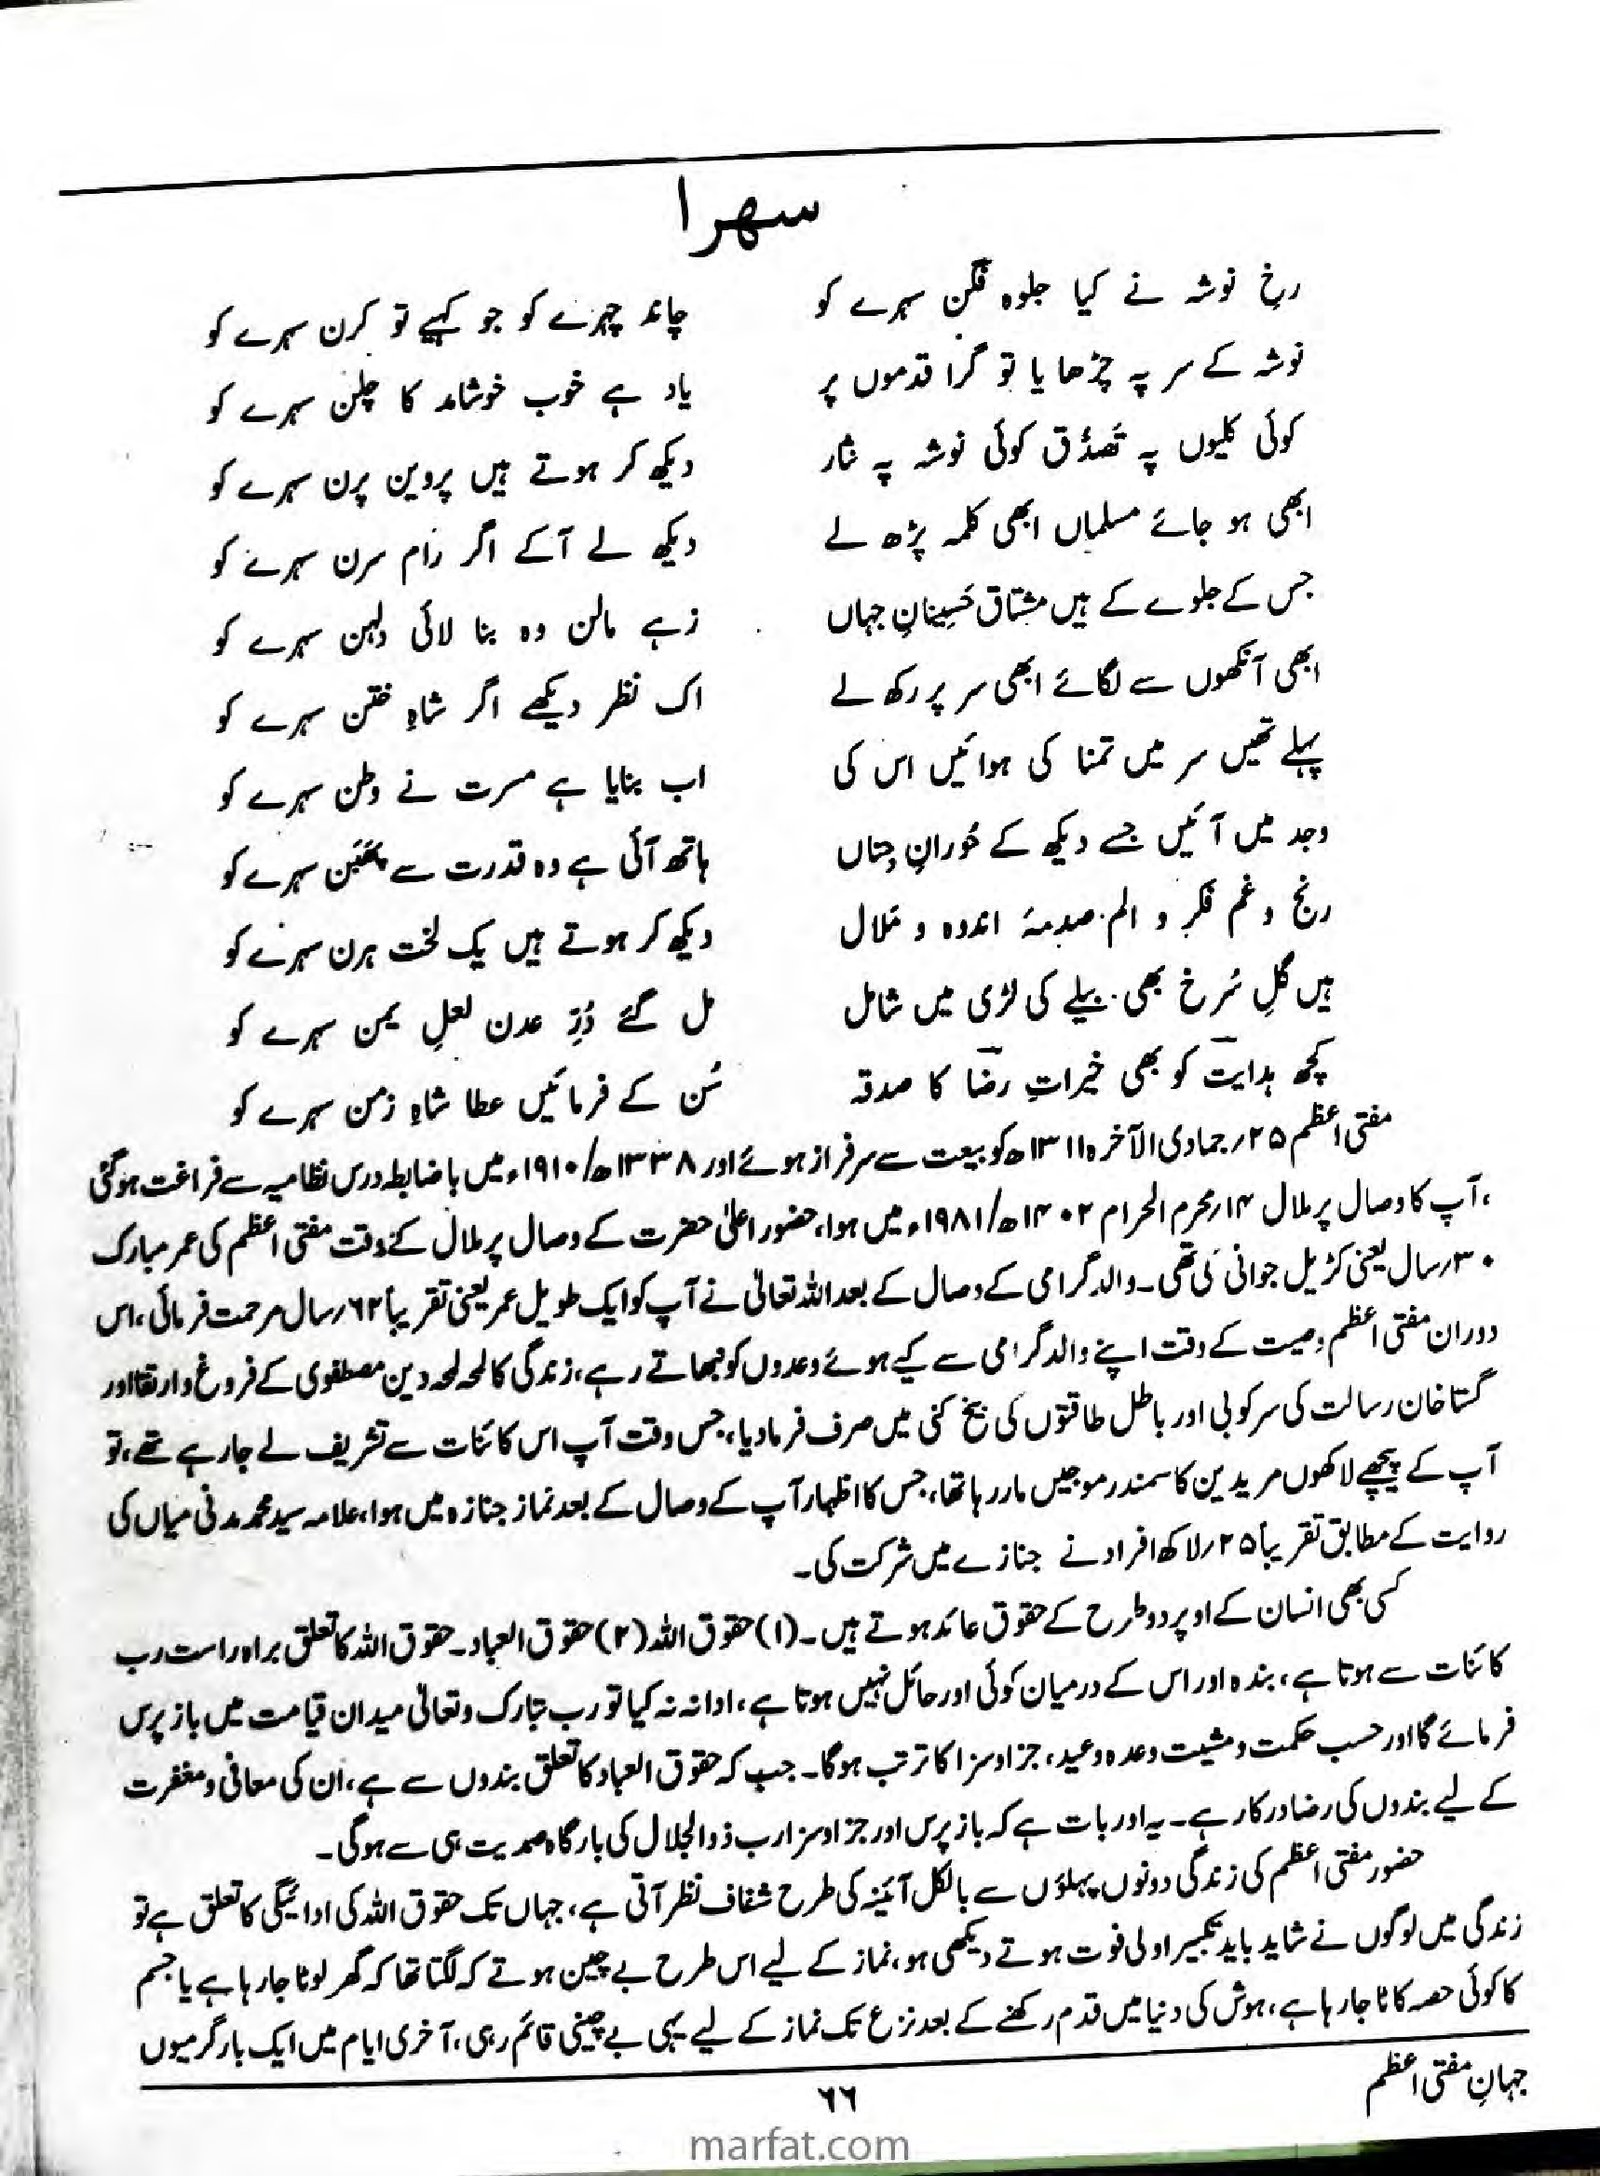 سہرا
رخِ نوشہ نے کیا جلوہ فگن سہرے کو چاند چہرے کو جو کہیے تو کرن سہرے کو
نوشہ کے سر پہ چڑھا یا تو گرا قدموں پر یاد ہے خوب خوشامد کا چلن سہرے کو
کوئی کلیوں پہ تَصدُّق کوئی نوشہ پہ نثار دیکھ کر ہوتے ہیں پروین پرن سہرے کو
ابھی ہو جائے مسلماں ابھی کلمہ پڑھ لے دیکھ لے آکے اگر رام سرن سہرے کو
جس کے جلوے کے ہیں مشتاق حَسِینانِ جہاں زہے مالن وہ بنا لائی دلہن سہرے کو
ابھی آنکھوں سے لگائے ابھی سر پر رکھ لے اک نظر دیکھے اگر شاہِ ختن سہرے کو
پہلے تھیں سر میں تمنا کی ہوائیں اس کی اب بنایا ہے مسرت نے وطن سہرے کو
وجد میں آئیں جسے دیکھ کے حُورانِ جِناں ہاتھ آئی ہے وہ قدرت سے پھَبَن سہرے کو
رنج و غم فکر و الم صدمۂ اندوہ و مَلال دیکھ کر ہوتے ہیں یک لخت ہرن سہرے کو
ہیں گلِ سُرخ بھی بیلے کی لڑی میں شامل مل گئے دُرِّ عدن لعلِ یمن سہرے کو
کچھ ہدایت کو بھی خیراتِ رضا کا صدقہ سُن کے فرمائیں عطا شاہِ زمن سہرے کو
مفتی اعظم ۲۵؍ جمادی الآخرہ ۱۳۱۱ھ کو بیعت سے سرفراز ہوئے اور ۱۳۳۸ھ/۱۹۱۰ء میں باضابطہ درس نظامیہ سے فراغت ہوگئی
، آپ کا وصال پر ملال ۱۴؍محرم الحرام ۱۴۰۲ھ/۱۹۸۱ء میں ہوا، حضور اعلیٰ حضرت کے وصال پر ملال کے وقت مفتی اعظم کی عمر مبارک
۳۰؍سال یعنی کڑیل جوانی کی تھی۔ والد گرامی کے وصال کے بعد اللہ تعالیٰ نے آپ کو ایک طویل عمر یعنی تقریباً ۶۲؍سال مرحمت فرمائی، اس
دوران مفتی اعظم وصیت کے وقت اپنے والد گرامی سے کیے ہوئے وعدوں کو نبھاتے رہے، زندگی کا لمحہ لمحہ دین مصطفوی کے فروغ و ارتقا اور
گستاخان رسالت کی سرکوبی اور باطل طاقتوں کی بیخ کنی میں صرف فرمادیا، جس وقت آپ اس کائنات سے تشریف لے جارہے تھے، تو
آپ کے پیچھے لاکھوں مریدین کا سمندر موجیں مار رہا تھا، جس کا اظہار آپ کے وصال کے بعد نماز جنازہ میں ہوا، علامہ سید محمد مدنی میاں کی
روایت کے مطابق تقریباً ۲۵؍لاکھ افراد نے جنازے میں شرکت کی۔
کسی بھی انسان کے اوپر دو طرح کے حقوق عائد ہوتے ہیں۔ (۱) حقوق اللہ (۲) حقوق العباد۔ حقوق اللہ کا تعلق براہ راست رب
کائنات سے ہوتا ہے، بندہ اور اس کے درمیان کوئی اور حائل نہیں ہوتا ہے، ادا نہ نہ کیا تو رب تبارک وتعالیٰ میدان قیامت میں باز پرس
فرمائے گا اور حسب حکمت ومشیت وعدہ وعید، جزا وسزا کا ترتب ہوگا۔ جب کہ حقوق العباد کا تعلق بندوں سے ہے، اُن کی معافی ومغفرت
کے لیے بندوں کی رضا درکار ہے۔ یہ اور بات ہے کہ باز پرس اور جزا وسزا رب ذوالجلال کی بارگاہ صمدیت ہی سے ہوگی۔
حضور مفتی اعظم کی زندگی دونوں پہلوؤں سے بالکل آئینہ کی طرح شفاف نظر آتی ہے، جہاں تک حقوق اللہ کی ادائیگی کا تعلق ہے تو
زندگی میں لوگوں نے شاید باید تکبیر اولی فوت ہوتے دیکھی ہو، نماز کے لیے اس طرح بے چین ہوتے کہ لگتا تھا کہ گھر لوٹا جارہا ہے یا جسم
کا کوئی حصہ کاٹا جارہا ہے، ہوش کی دنیا میں قدم رکھنے کے بعد نزع تک نماز کے لیے یہی بے چینی قائم رہی، آخری ایام میں ایک بار گرمیوں
جہانِ مفتی اعظم
۶۶
marfat.com